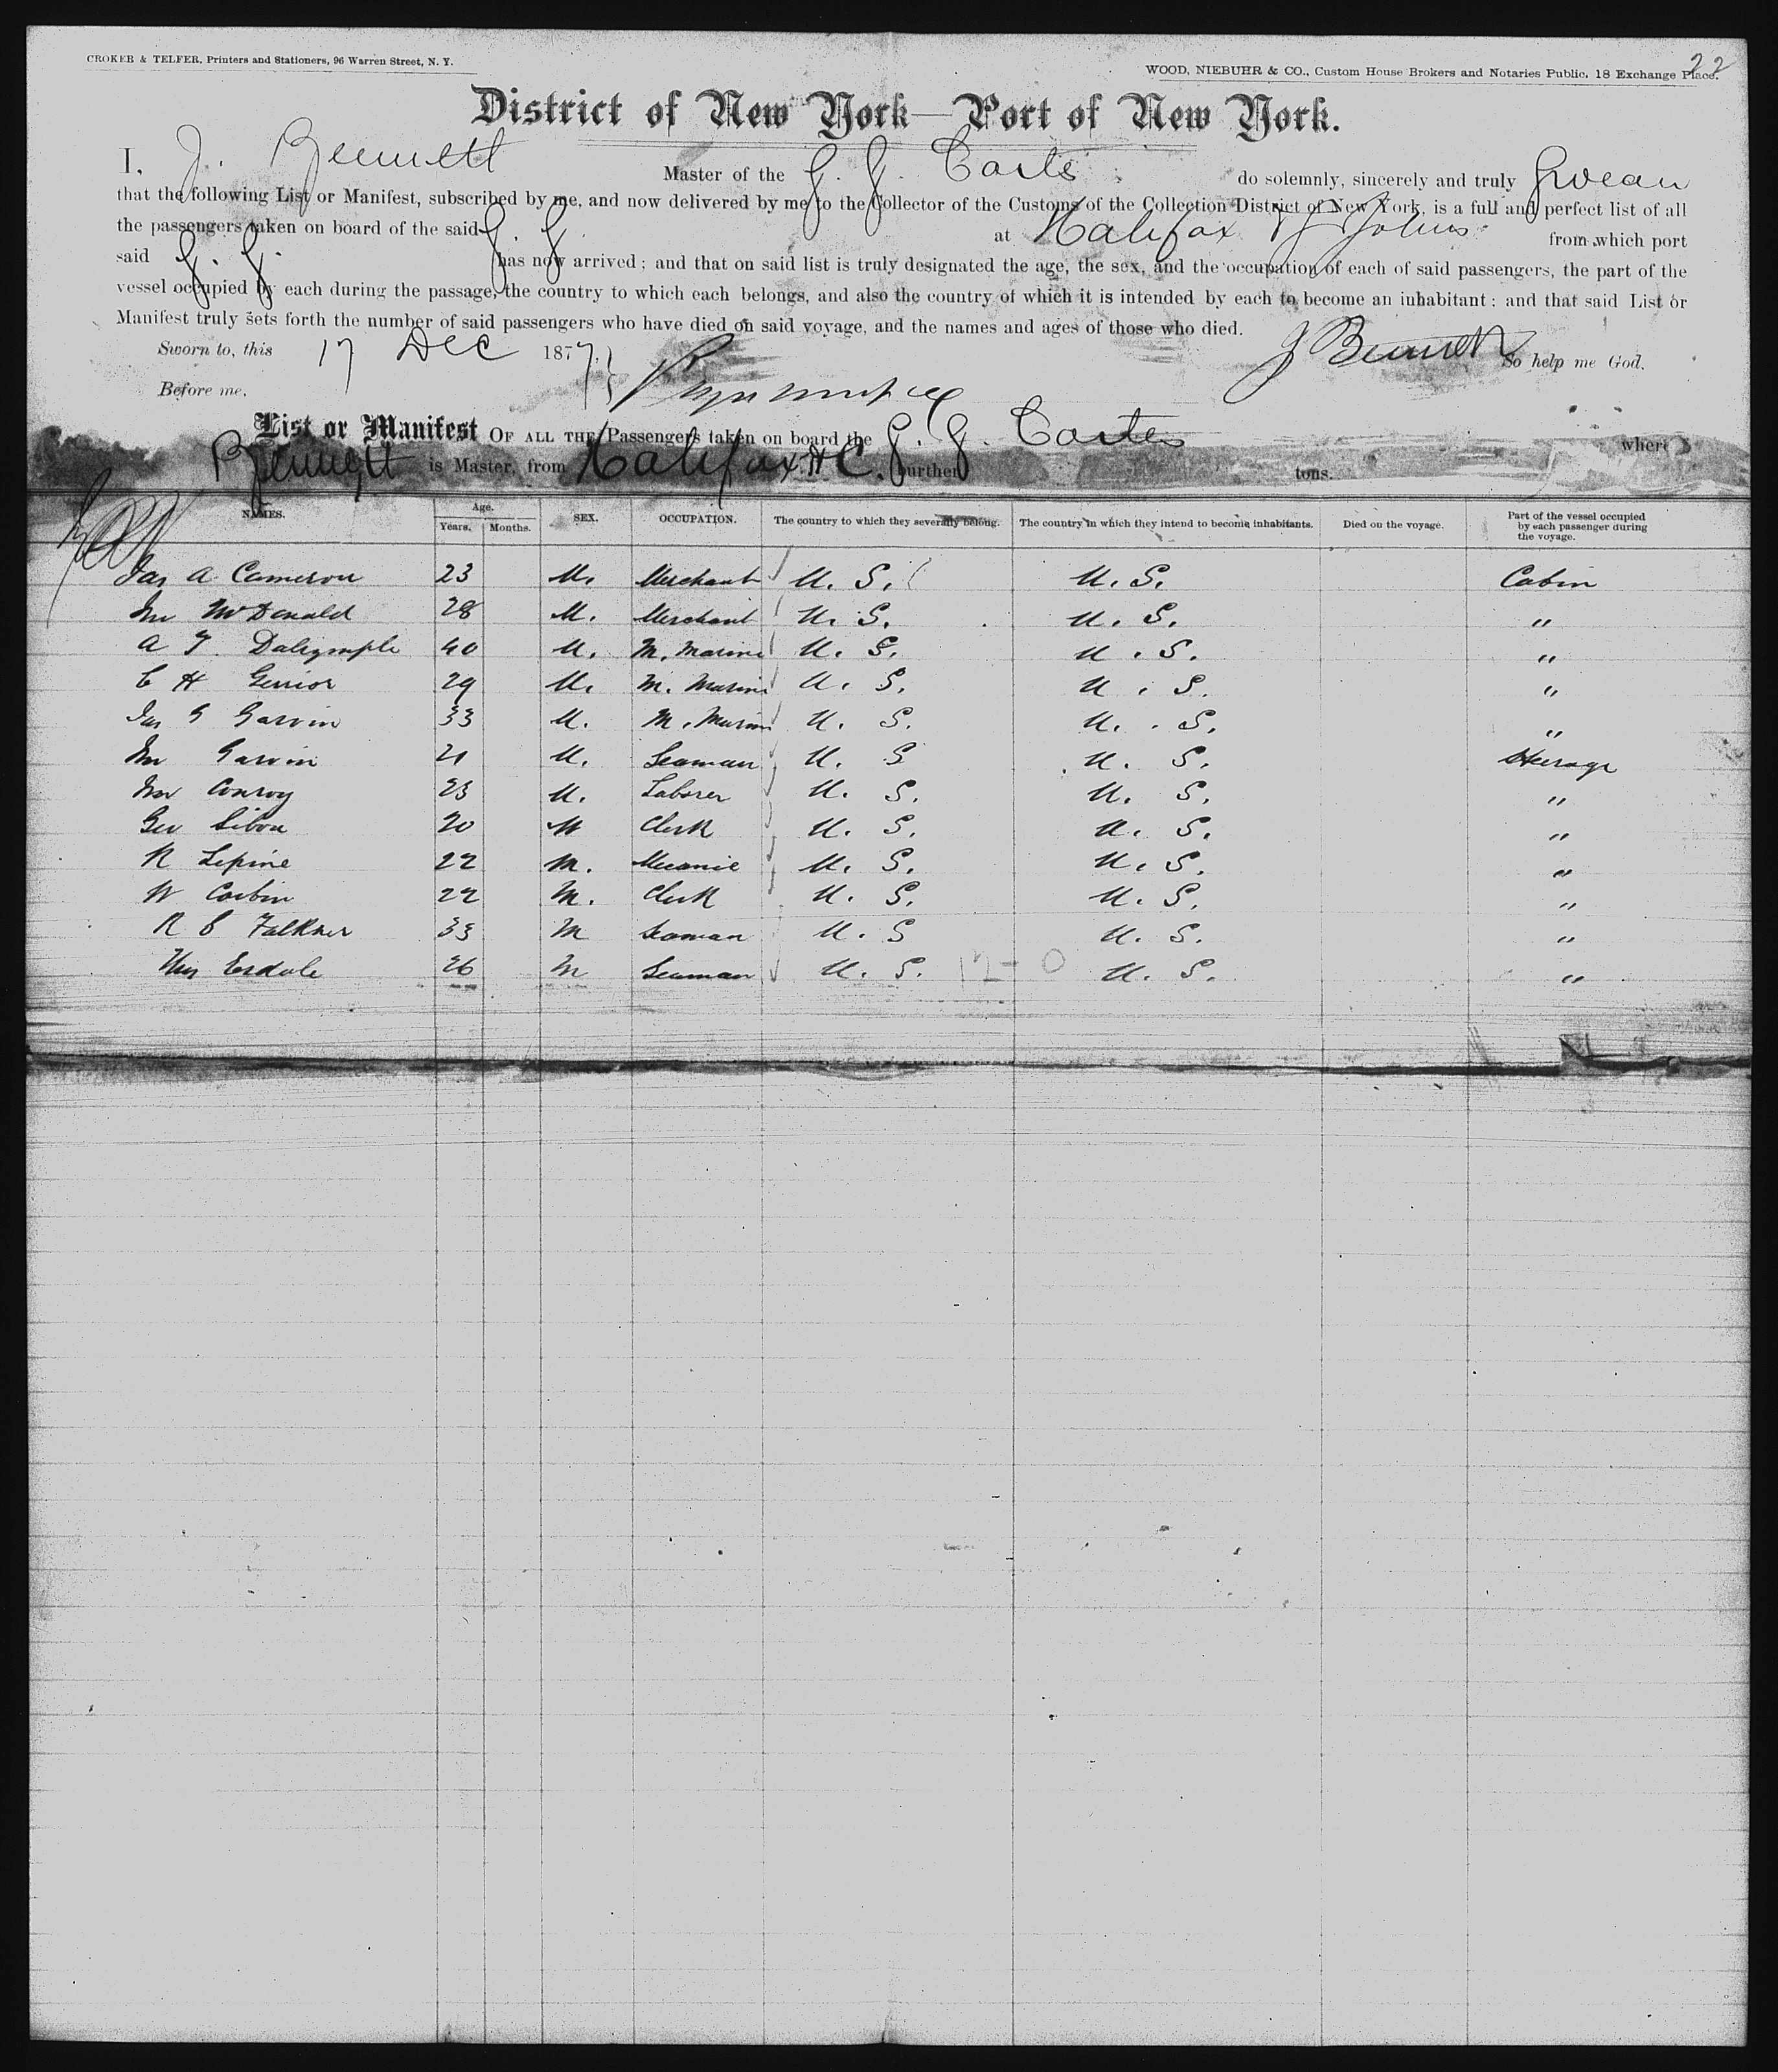 22
CROKER & TELFER, Printers and Stationers, 96 Warren Street, N. Y.
WOOD, NIEBUHR & CO., Custom House Brokers and Notaries Public, 18 Exchange Place.
District of New York—Port of New York.
I, J. Bennett Master of the G. J. do solemnly, sincerely and truly Swear
that the following List or Manifest, subscribed by me, and now delivered by me to the Collector of the Customs of the Collection District of New York, is a full and perfect list of all
the passengers taken on board of the said at Halifax & St Johns from which port
said has now arrived; and that on said list is truly designated the age, the sex, and the occupation of each of said passengers, the part of the
vessel occupied by each during the passage, the country to which each belongs, and also the country of which it is intended by each to become an inhabitant; and that said List or
Manifest truly sets forth the number of said passengers who have died on said voyage, and the names and ages of those who died.
Sworn to, this 17 Dec 1877. J Bennett So help me God.
Before me,
List or Manifest OF ALL THE Passengers taken on board the whereof
Bennett is Master, from Halifax burthen tons.
NAMES. Age. Years. Months. SEX. OCCUPATION. The country to which they severally belong. The country in which they intend to become inhabitants. Died on the voyage. Part of the vessel occupied by each passenger during the voyage.
Jas A. Cameron 23 M. Merchant U. S. U. S. Cabin
Jno McDonald 28 M. Merchant U. S. U. S. "
A T. Dalrymple 40 M. M. Marine U. S. U. S. "
C H Gerrior 29 M. M. Marine U. S. U. S. "
Jas G Garvin 33 M. M. Marine U. S. U. S. "
Jno Garvin 21 M. Seaman U. S U. S. Steerage
Jno Conroy 23 M. Laborer U. S. U. S. "
Geo 20 M Clerk U. S. U. S. "
R Lepine 22 M. Mecanic U. S. U. S. "
W Corbin 22 M. Clerk U. S. U. S. "
R C Falkner 33 M Seaman U. S U. S. "
Esdale 26 M Seaman U. S. 12-0 U. S. "